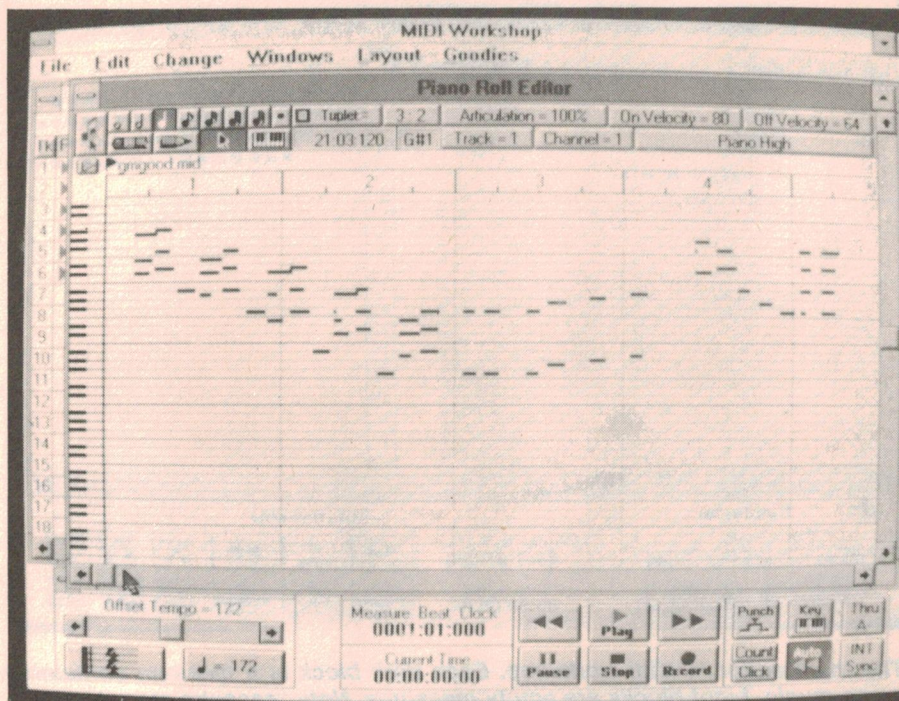 MIDI Workshop
File Edit Change Windows Layout Goodies
Piano Roll Editor
Tuplet = 3 : 2 Articulation = 100% On Velocity = 80 Off Velocity = 64
21:03:120 G#1 Track = 1 Channel = 1 Piano High
gmgood.mid
1 2 3 4
1
2
3
4
5
6
7
8
9
10
11
12
13
14
15
16
17
18
Offset Tempo = 172
= 172
Measure Beat Clock
0001:01:000
Current Time
00:00:00:00
Play
Pause Stop Record
Punch Key Thru
Count Click Auto INT Sync